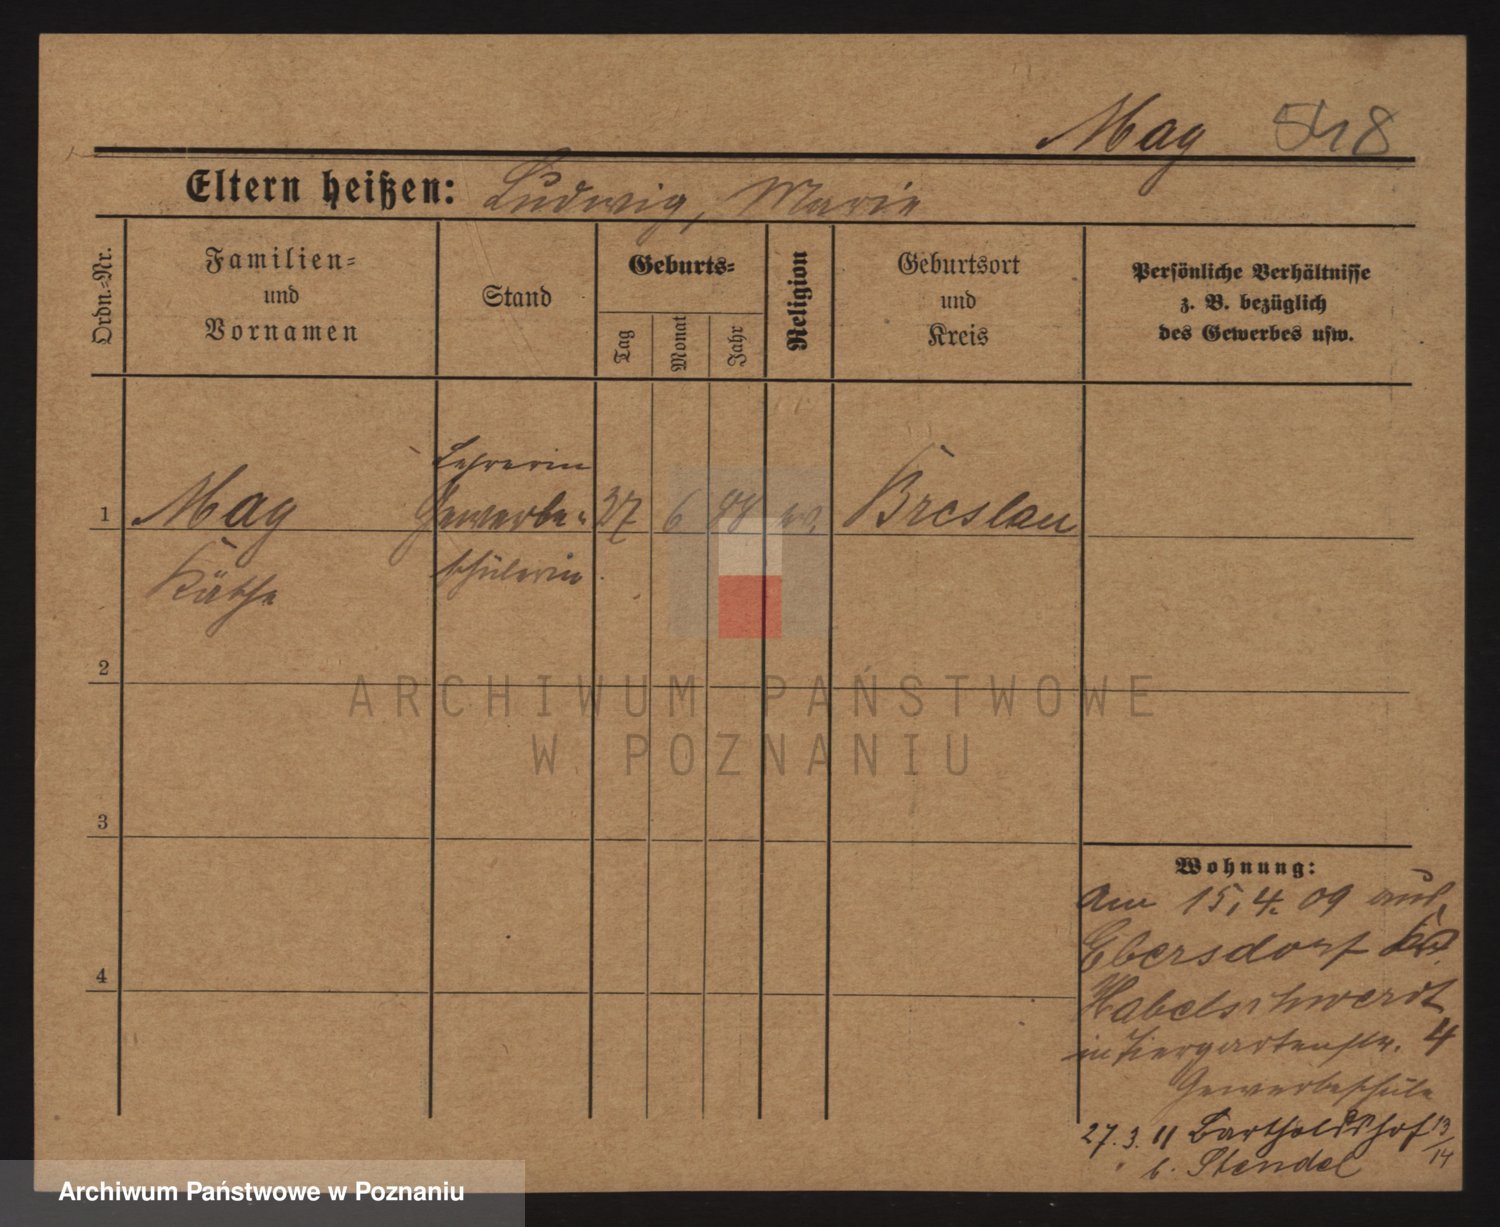 Mag 548
Eltern heißen: Ludwig, Marie
Ordn.-Nr.
Familien- und Vornamen
Stand
Geburts-
Tag
Monat
Jahr
Religion
Geburtsort und Kreis
Persönliche Verhältnisse
z. B. bezüglich
des Gewerbes usw.
Lehrerin
1 Mag Gewerbe- 27 6 88 ev. Breslau
Käthe schülerin
2
3
4
Wohnung:
Am 15.4.09 aus
Ebersdorf Krs.
Habelschwerdt
in Tiergartenstr. 4
Gewerbeschule
27.3.11 Bartholdshof 13/14
b. Stendel
ARCHIWUM PAŃSTWOWE
W POZNANIU
Archiwum Państwowe w Poznaniu